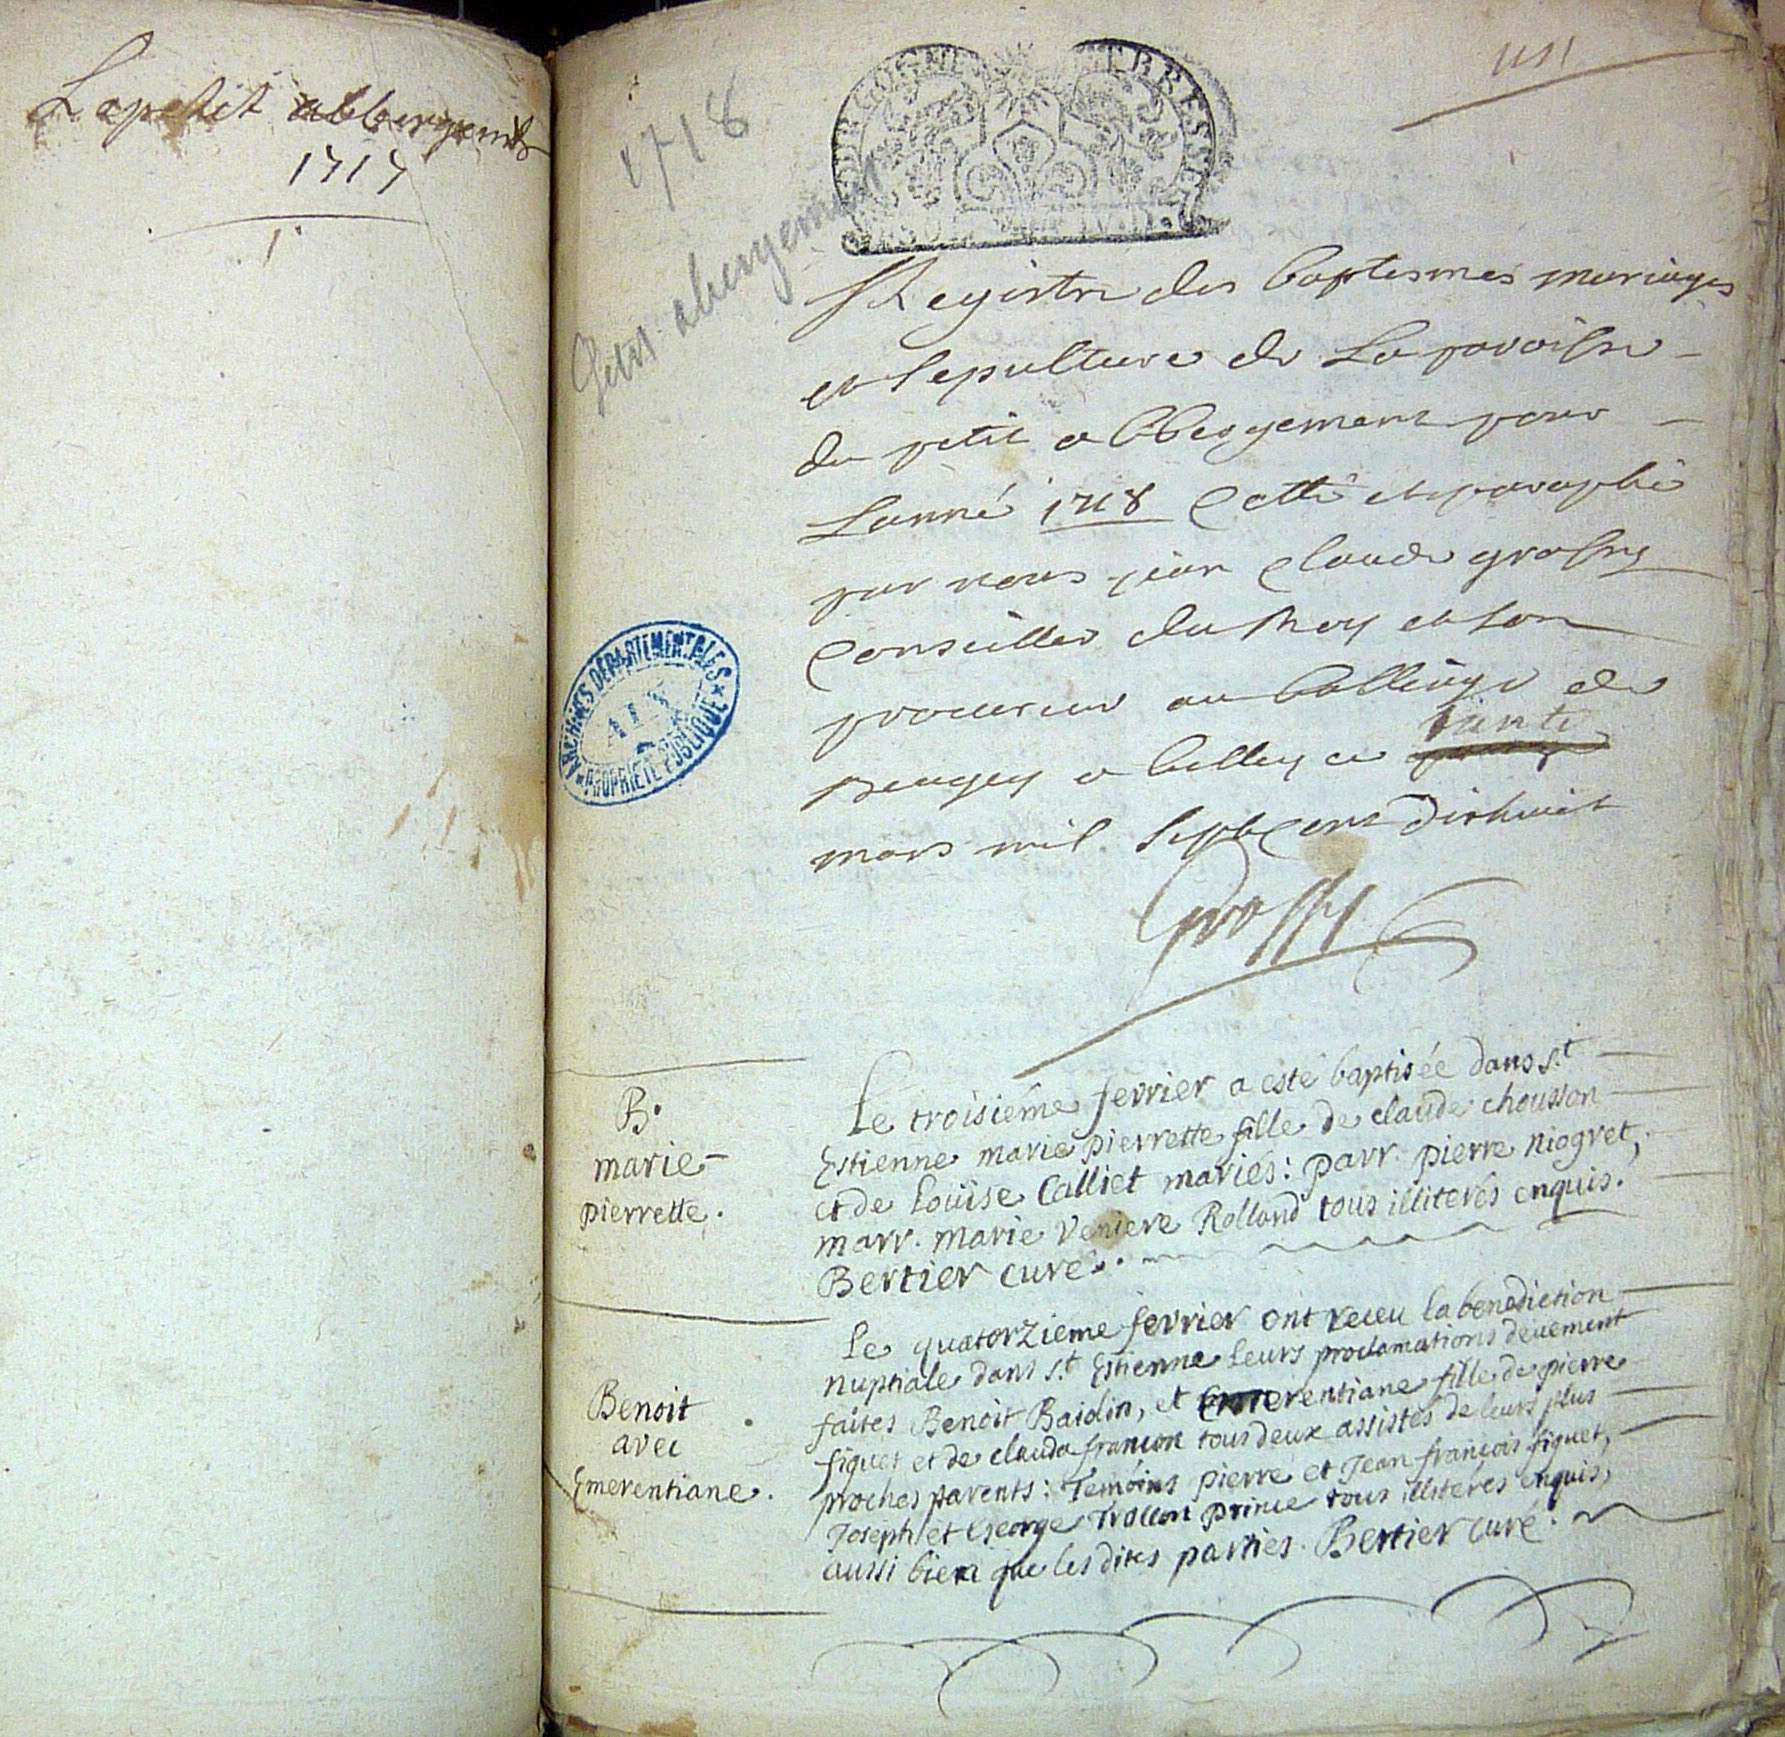 Le petit abbergement
1717
1718
Petit abergement
BOURGOGNE ET BRESSE
Registre des baptesmes mariages
et sepulture de La paroisse
du petit abbergement pour
Lanné 1718 Cotté et paraphé
par nous jean Claude grossy
Conseiller du Roy et son
procureur au balliage de
Beugey a belley ce trente
mars mil Sept Cent dixhuit
Grossy
ARCHIVES DÉPARTEMENTALES
AIN
PROPRIÉTÉ PUBLIQUE
B.
marie
pierrette.
Le troisiême fevrier a esté baptisée dans s.t
Estienne marie pierrette fille de claude chousson
et de Loüise Calliet mariés: parr. pierre niogret,
marr. marie Veniere Rolland tous illiterés enquis.
Bertier curé.
Benoit
avec
Emerentiane.
Le quatorzieme fevrier ont receu la benediction
nuptiale dans s.t Estienne leurs proclamations deüement
faites Benoit Baidin, et Emerentiane fille de pierre
figuet et de clauda francon tous deux assistés de leurs plus
proches parents: Temoins pierre et Jean françois figuet,
Joseph et George Traccon prince tous illiterés enquis,
aussi bien que les dites parties. Bertier curé.